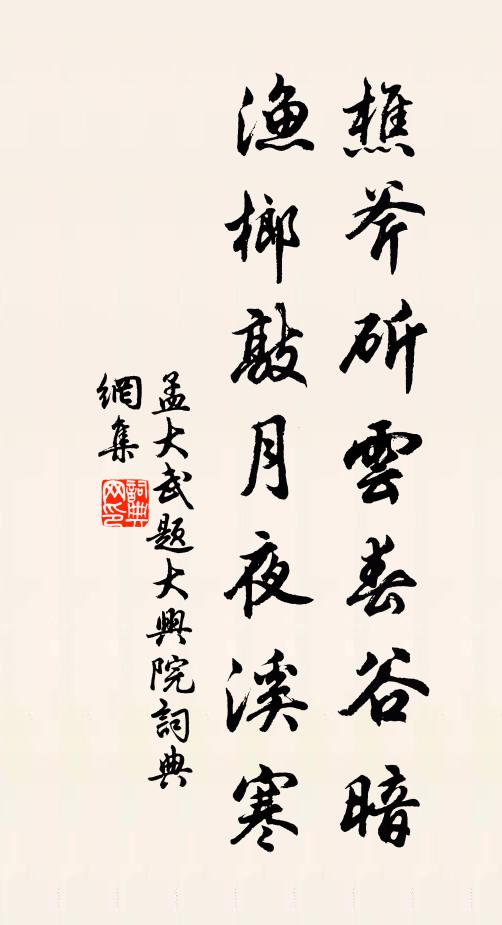 樵斧斫雲春谷暗
漁榔敲月夜溪寒
孟大武題大興院詞典
網集
詞典
网印